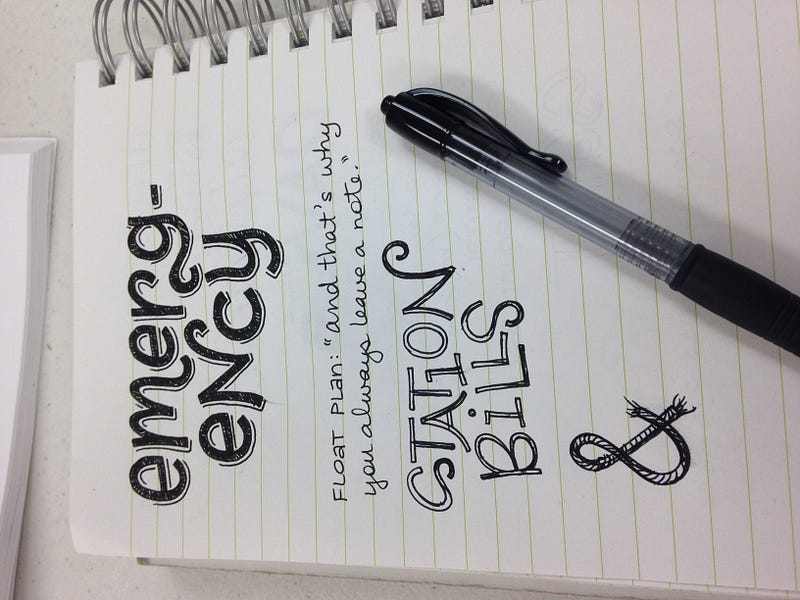 emerg-
eNcy
FLOAT PLAN: "and that's why
you always leave a note."
STATION
BiLLS
&